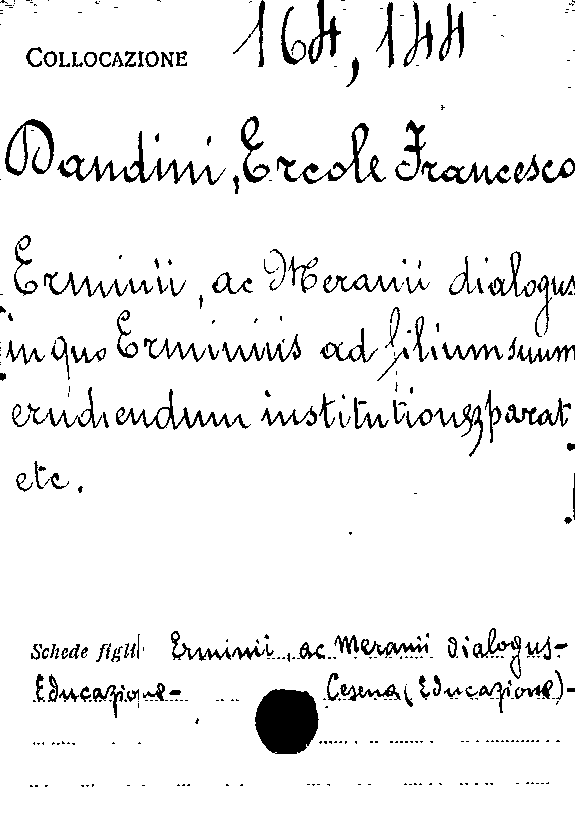 COLLOCAZIONE 164, 144
Dandini, Ercole Francesco
Erminii, ac Meranii dialogus
in quo Erminius ad filium suum
erudiendum institutiones parat
etc.
Schede figli Erminii, ac Meranii dialogus-
Educazione- Cesena (Educazione)-